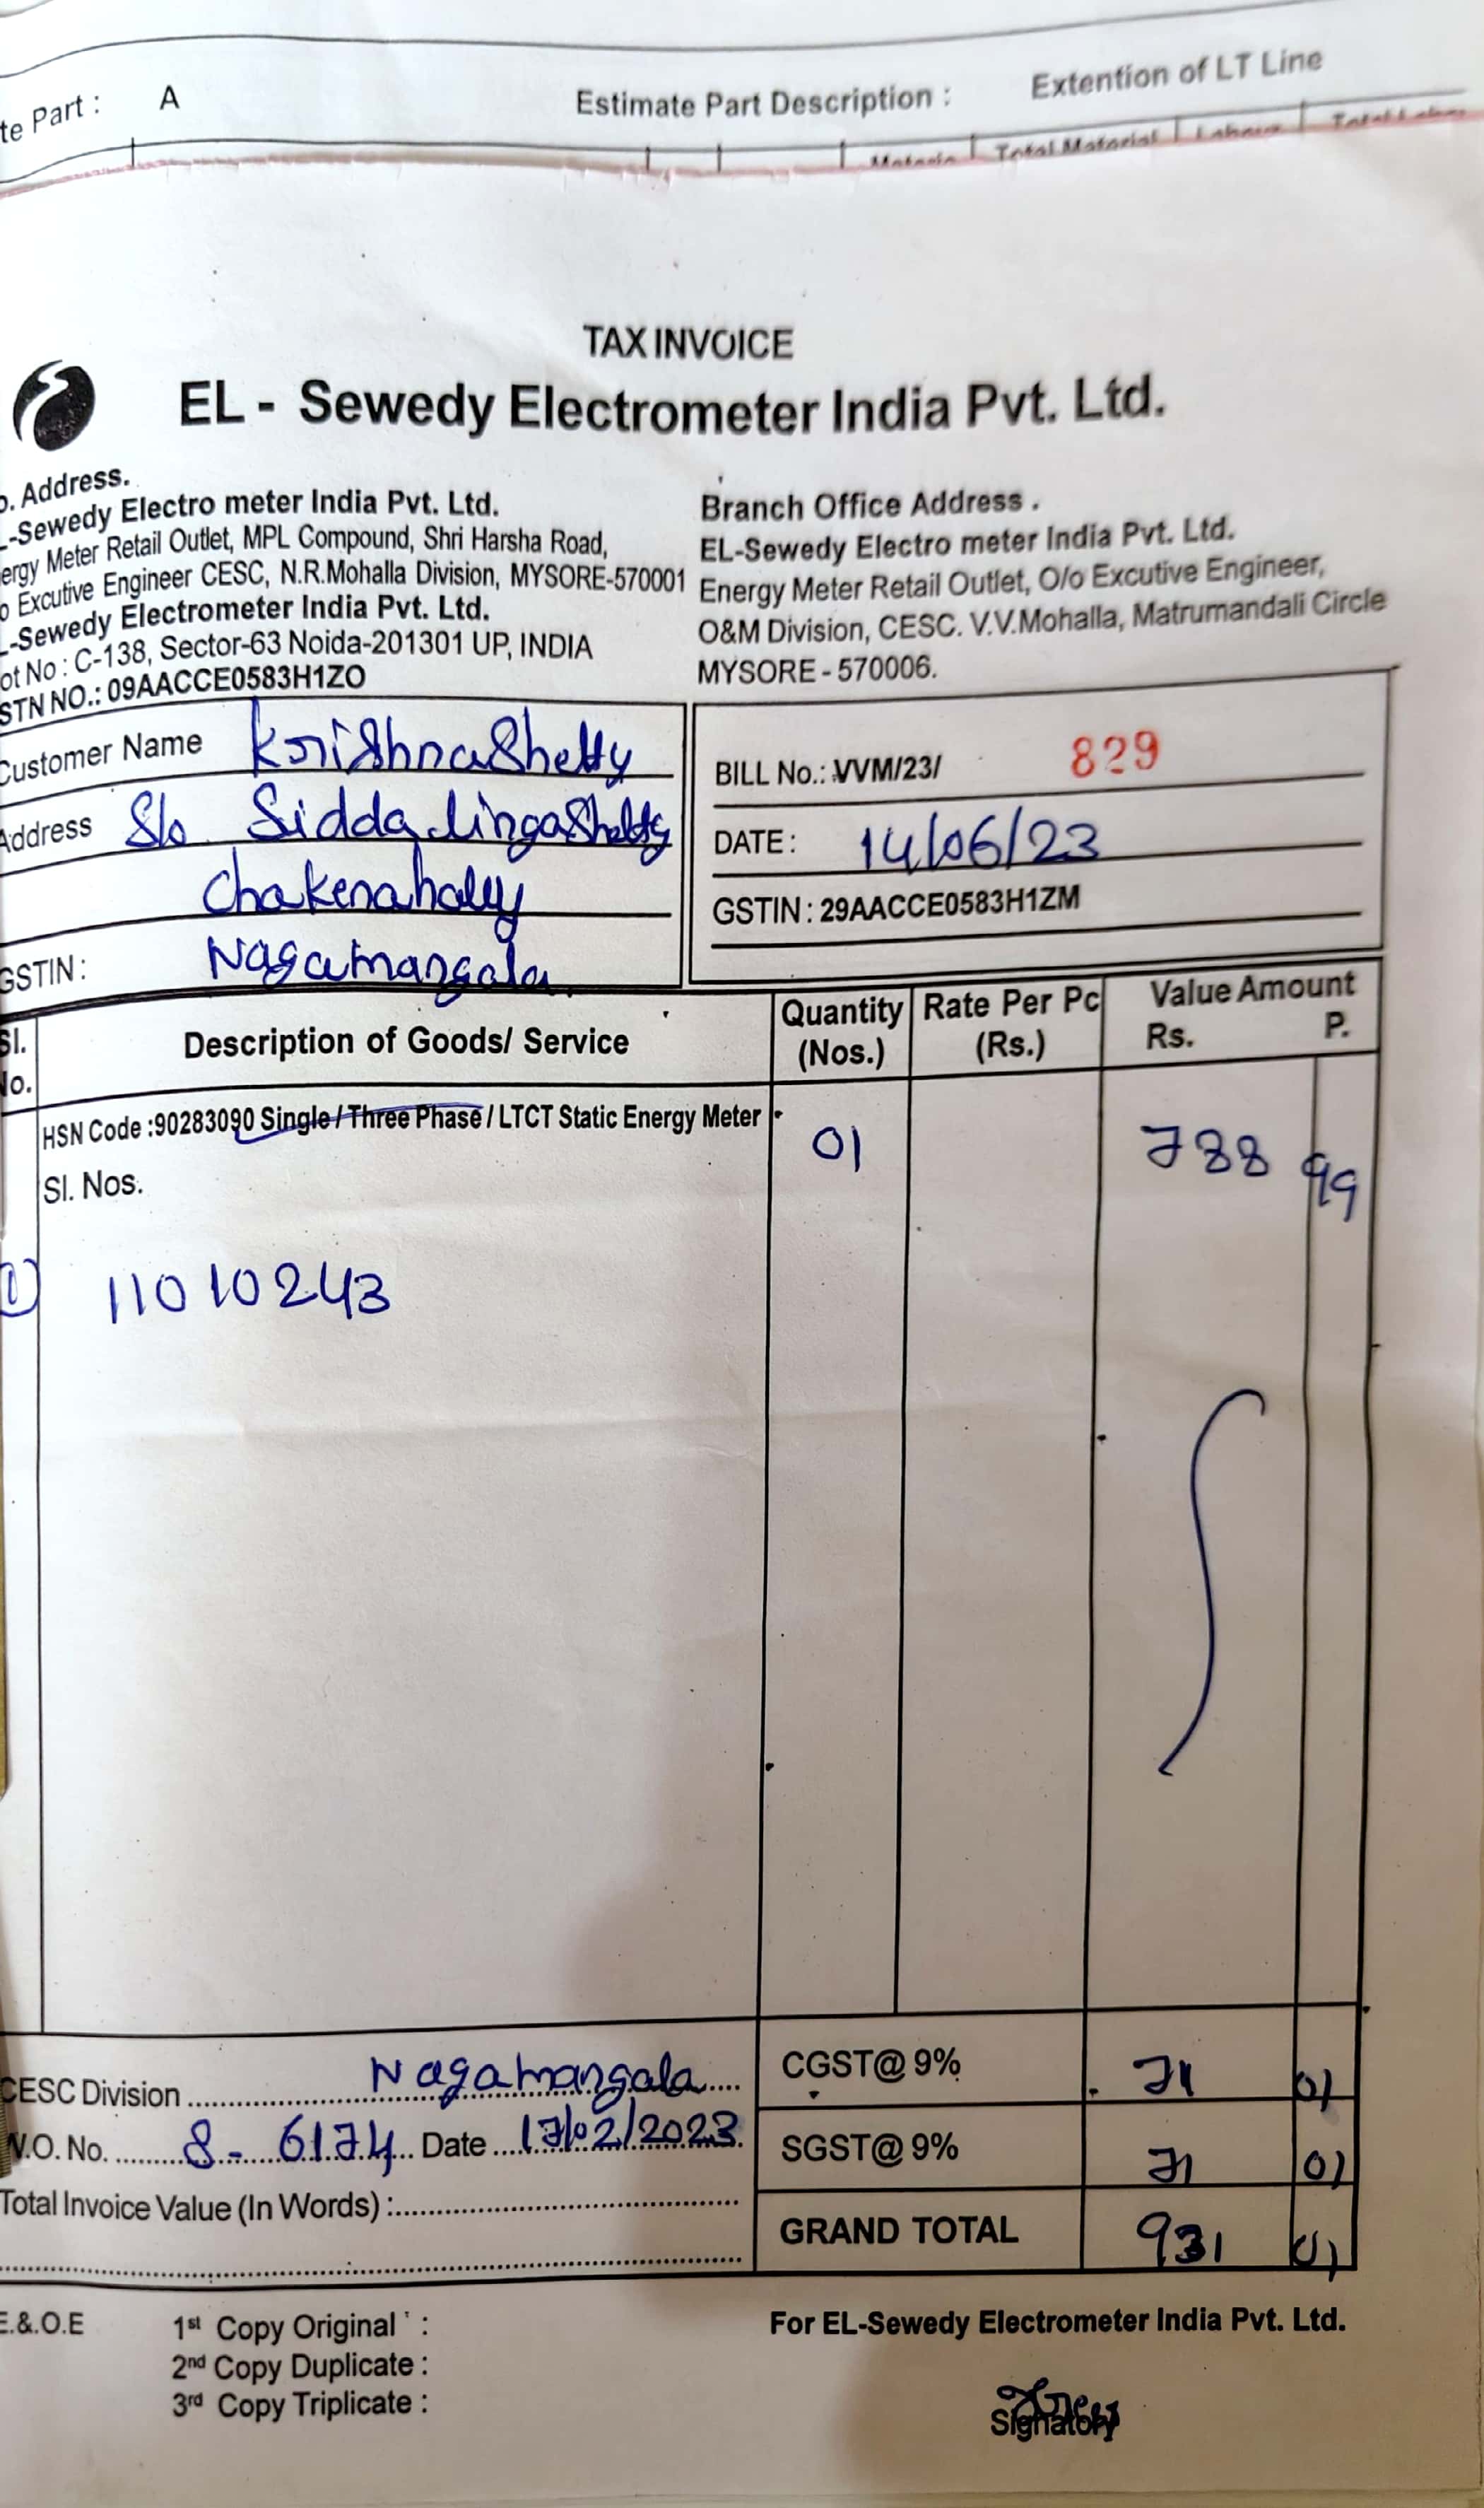 te Part : A Estimate Part Description : Extention of LT Line
Total Material Labour
TAX INVOICE
EL - Sewedy Electrometer India Pvt. Ltd.
. Address.
-Sewedy Electro meter India Pvt. Ltd.
ergy Meter Retail Outlet, MPL Compound, Shri Harsha Road,
o Excutive Engineer CESC, N.R.Mohalla Division, MYSORE-570001
-Sewedy Electrometer India Pvt. Ltd.
ot No : C-138, Sector-63 Noida-201301 UP, INDIA
STN NO.: 09AACCE0583H1ZO
Branch Office Address .
EL-Sewedy Electro meter India Pvt. Ltd.
Energy Meter Retail Outlet, O/o Excutive Engineer,
O&M Division, CESC. V.V.Mohalla, Matrumandali Circle
MYSORE - 570006.
Customer Name KrishnaShetty
Address S/o SiddalingaShetty
Chakenahally
GSTIN : Nagamangala
BILL No.: VVM/23/ 829
DATE : 14/06/23
GSTIN : 29AACCE0583H1ZM
Sl. No. Description of Goods/ Service Quantity (Nos.) Rate Per Pc (Rs.) Value Amount Rs. P.
HSN Code :90283090 Single / Three Phase / LTCT Static Energy Meter 01 788 99
Sl. Nos.
1) 11010243
CESC Division Nagamangala CGST@ 9% 71 01
W.O. No. 8- 6174 Date 17/02/2023 SGST@ 9% 71 01
Total Invoice Value (In Words) :
GRAND TOTAL 931 01
E.&.O.E 1st Copy Original :
2nd Copy Duplicate :
3rd Copy Triplicate :
For EL-Sewedy Electrometer India Pvt. Ltd.
Signatory